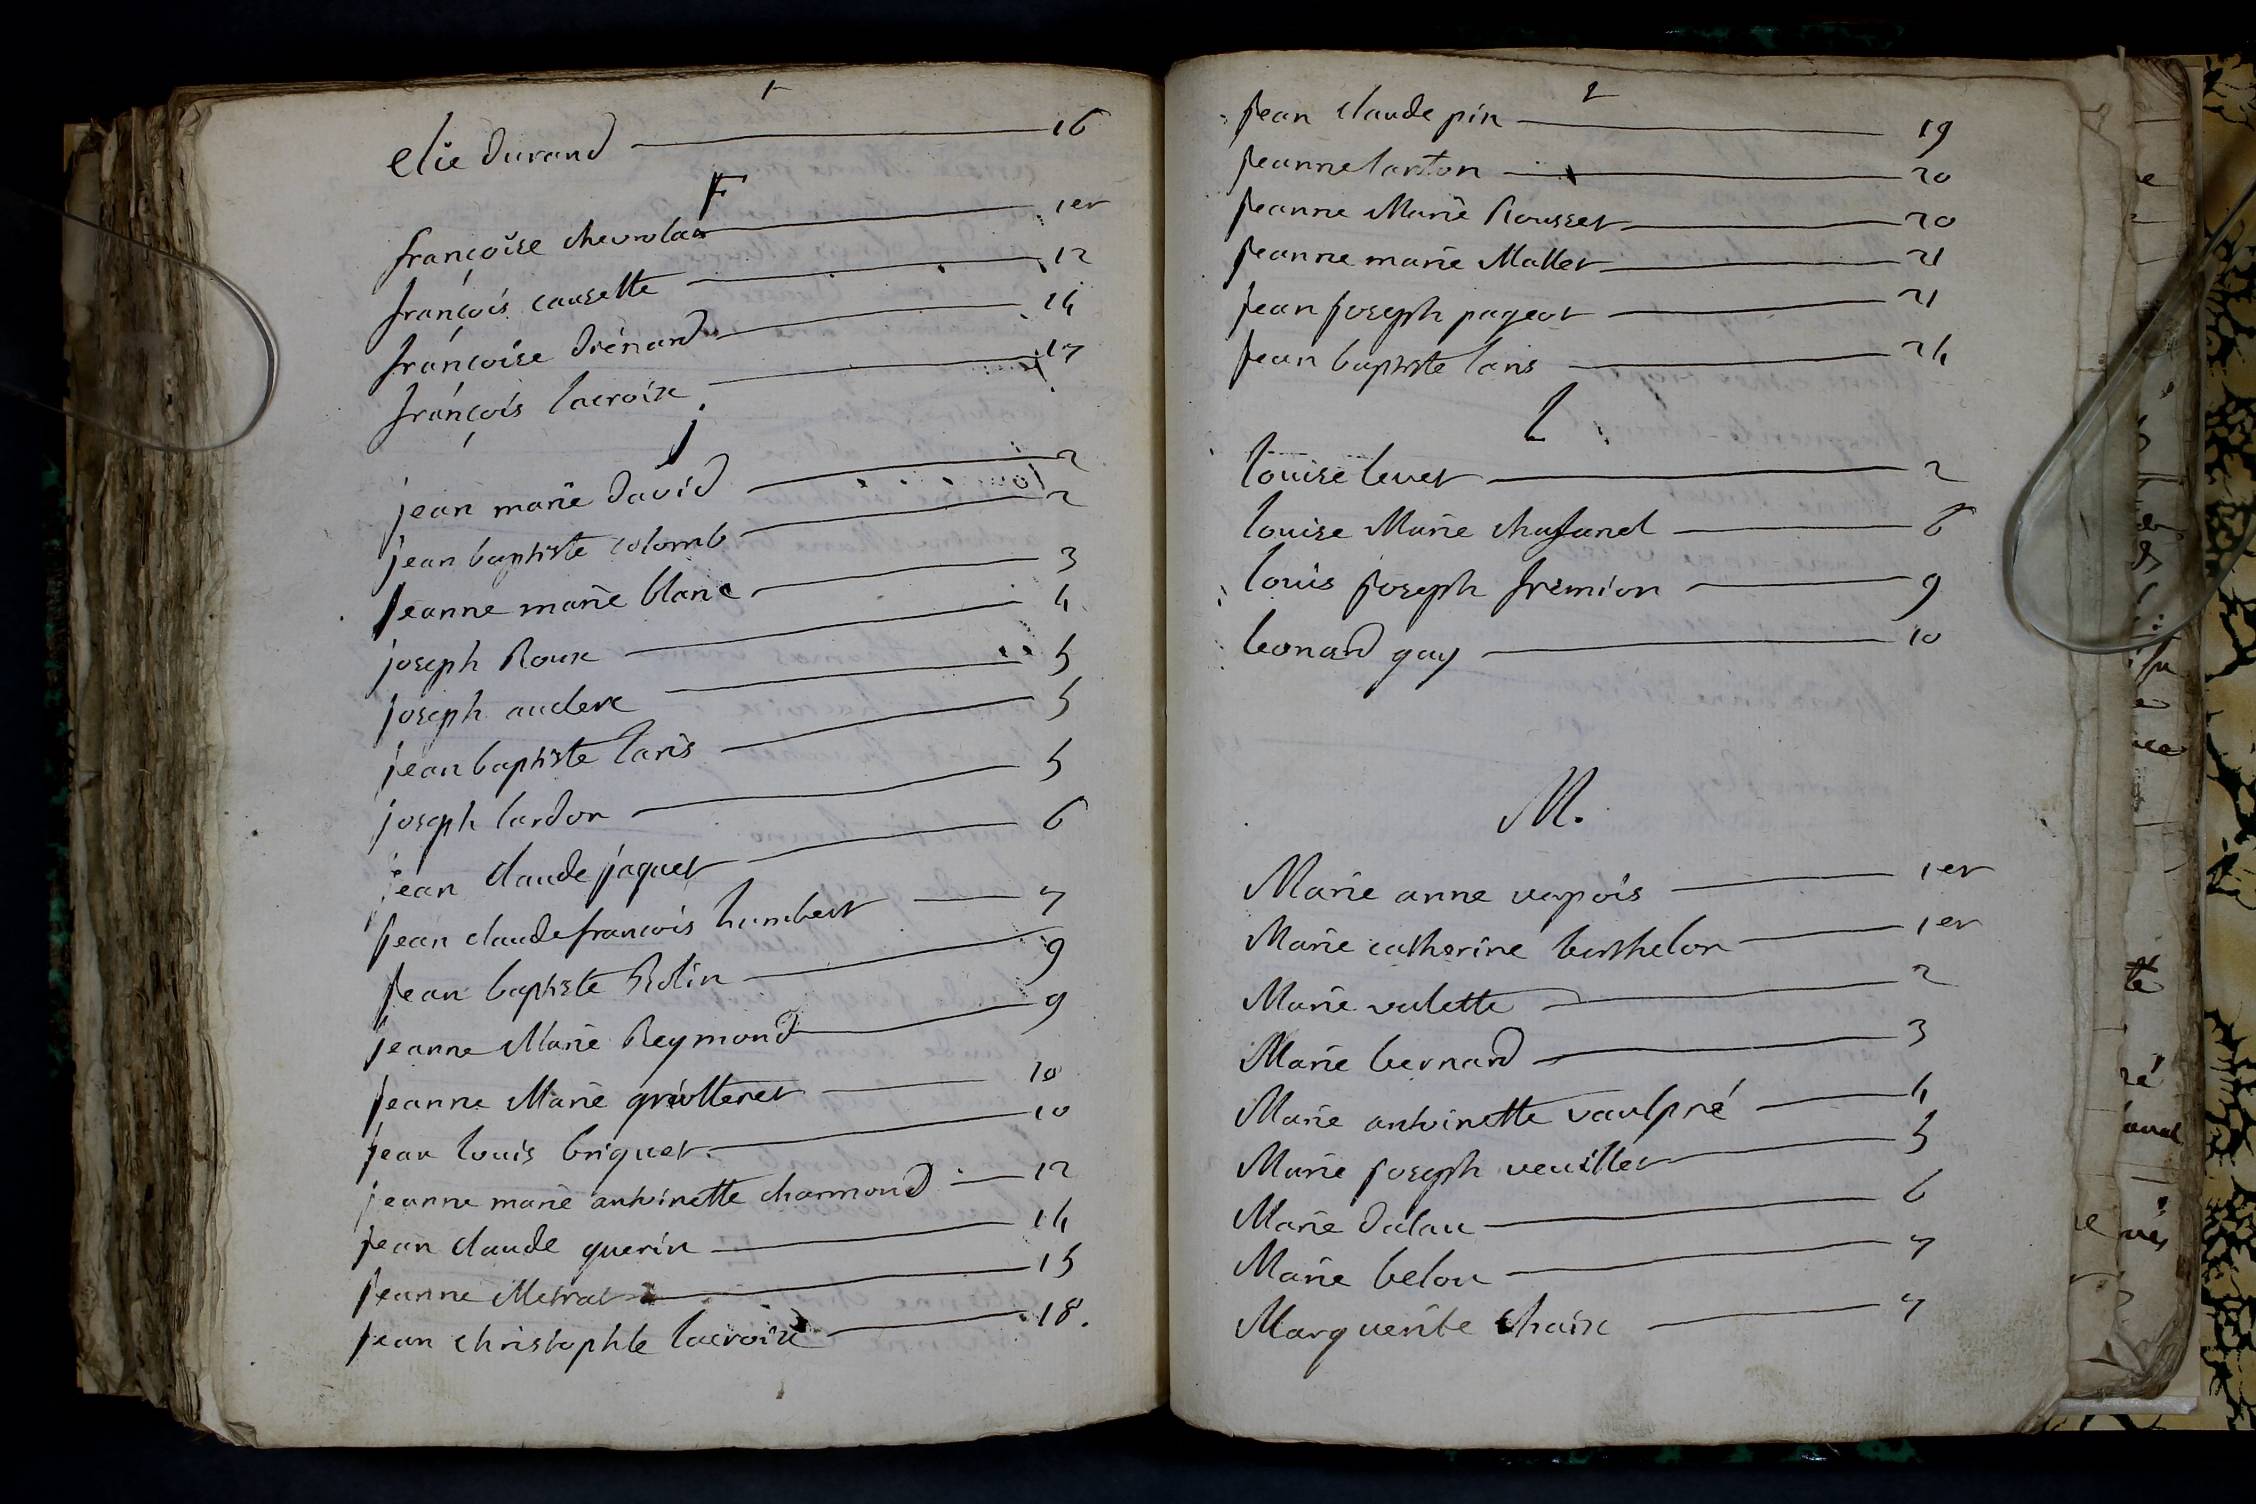 elie durand 16
F
françoise chevrola 1er
françois causette 12
françoise diénard 14
françois lacroix 17
j
jean marie david 2
jean baptiste colomb 2
jeanne marie blanc 3
joseph Roux 4
joseph auclerc 5
jean baptiste laris 5
joseph lardon 5
jean claude jaquet 6
jean claude francois humbert 7
jean baptiste Rolin 9
jeanne Marie Reymond 9
jeanne Marie griotteret 10
jean louis briquet 10
jeanne marie antoinette charmond 12
jean claude guerin 14
jeanne Metrat 15
jean christophle lacroix 18.
jean claude pin 19
jeanne lanton 20
jeanne Marie Rousset 20
jeanne marie Mallet 21
jean joseph pageot 21
jean baptiste laris 24
L
louise levet 2
louise Marie chafanel 6
louis joseph fremion 9
leonard gay 10
M.
Marie anne vapois 1er
Marie catherine berthelon 1er
Marie valette 2
Marie bernard 3
Marie antoinette vaulpré 4
Marie joseph veuillet 5
Marie dalau 6
Marie belou 7
Marguerite chaix 7